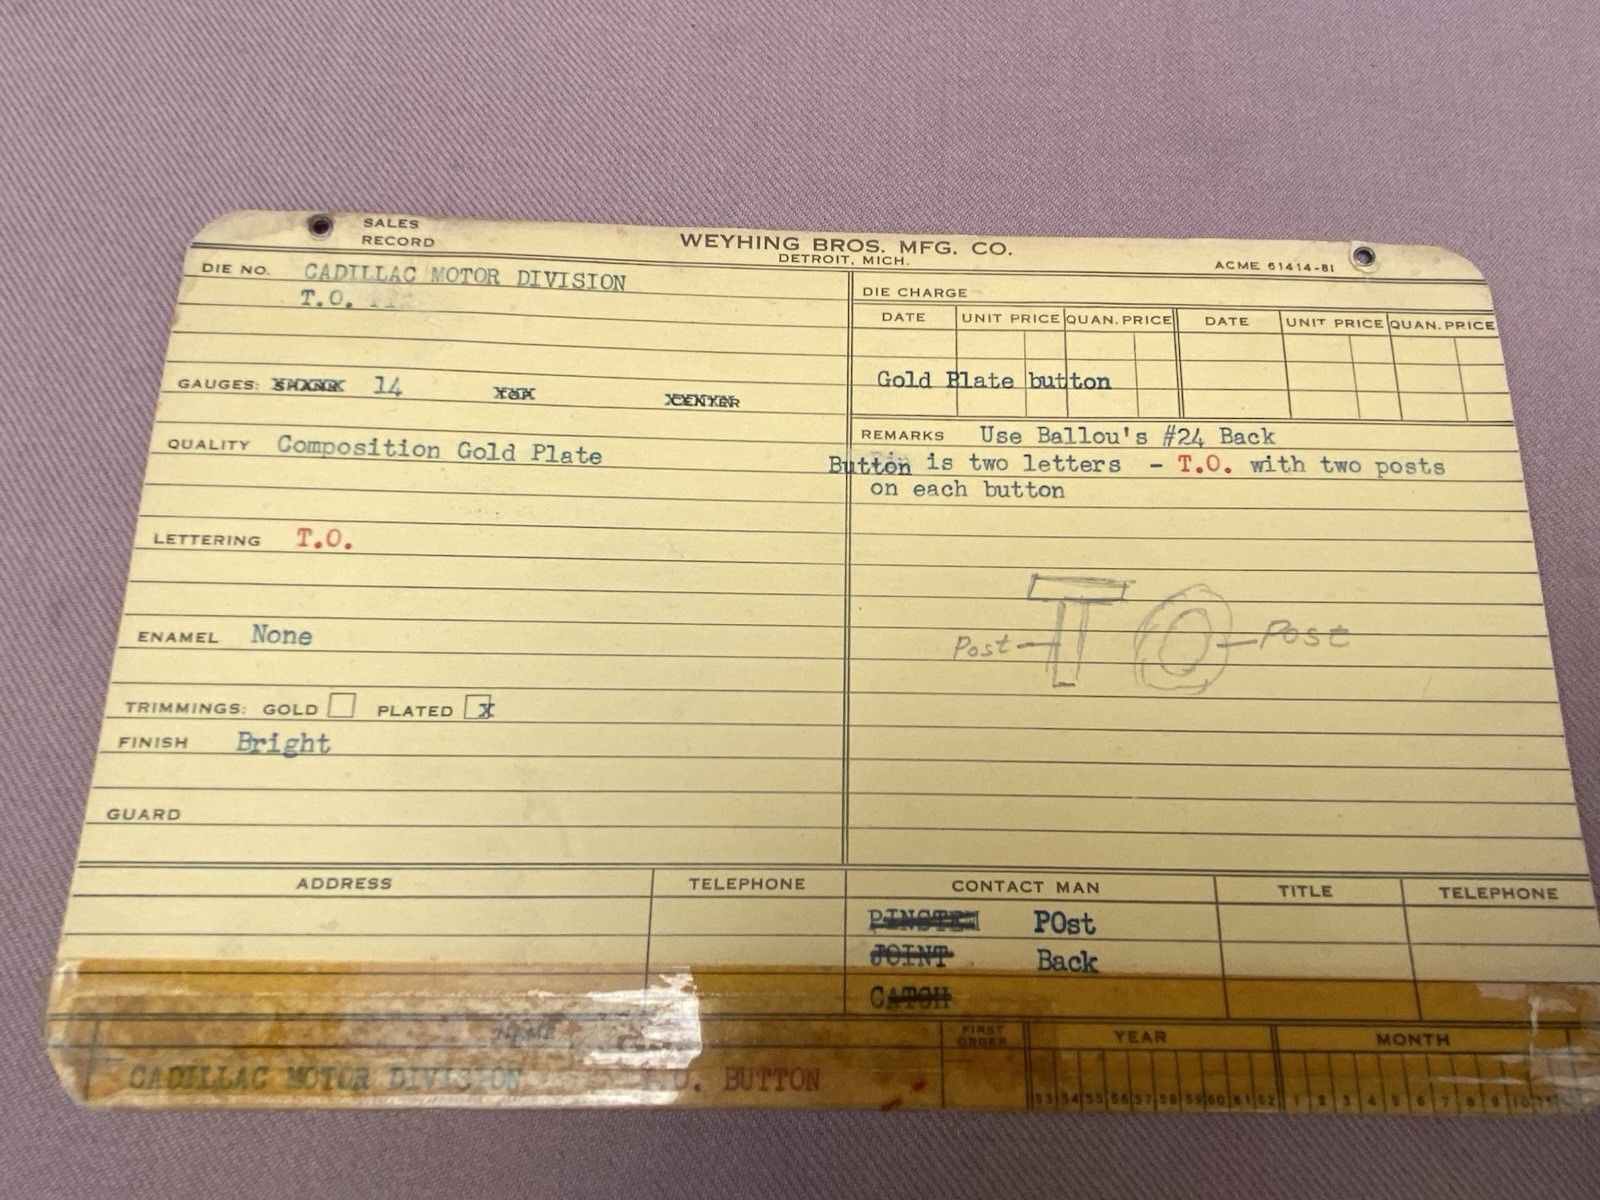 SALES
RECORD
WEYHING BROS. MFG. CO.
DETROIT, MICH.
ACME 61414-81
DIE NO. CADILLAC MOTOR DIVISION
T.O.
DIE CHARGE
DATE UNIT PRICE QUAN. PRICE DATE UNIT PRICE QUAN. PRICE
Gold Plate button
GAUGES: SHANK 14
QUALITY Composition Gold Plate
REMARKS Use Ballou's #24 Back
Button is two letters - T.O. with two posts
on each button
LETTERING T.O.
Post T O Post
ENAMEL None
TRIMMINGS: GOLD PLATED x
FINISH Bright
GUARD
ADDRESS TELEPHONE CONTACT MAN TITLE TELEPHONE
PINSTEM POst
JOINT Back
CATCH
NAME FIRST ORDER YEAR MONTH
CADILLAC MOTOR DIVISION T.O. BUTTON
53 54 55 56 57 58 59 60 61 62 1 2 3 4 5 6 7 8 9 10 11